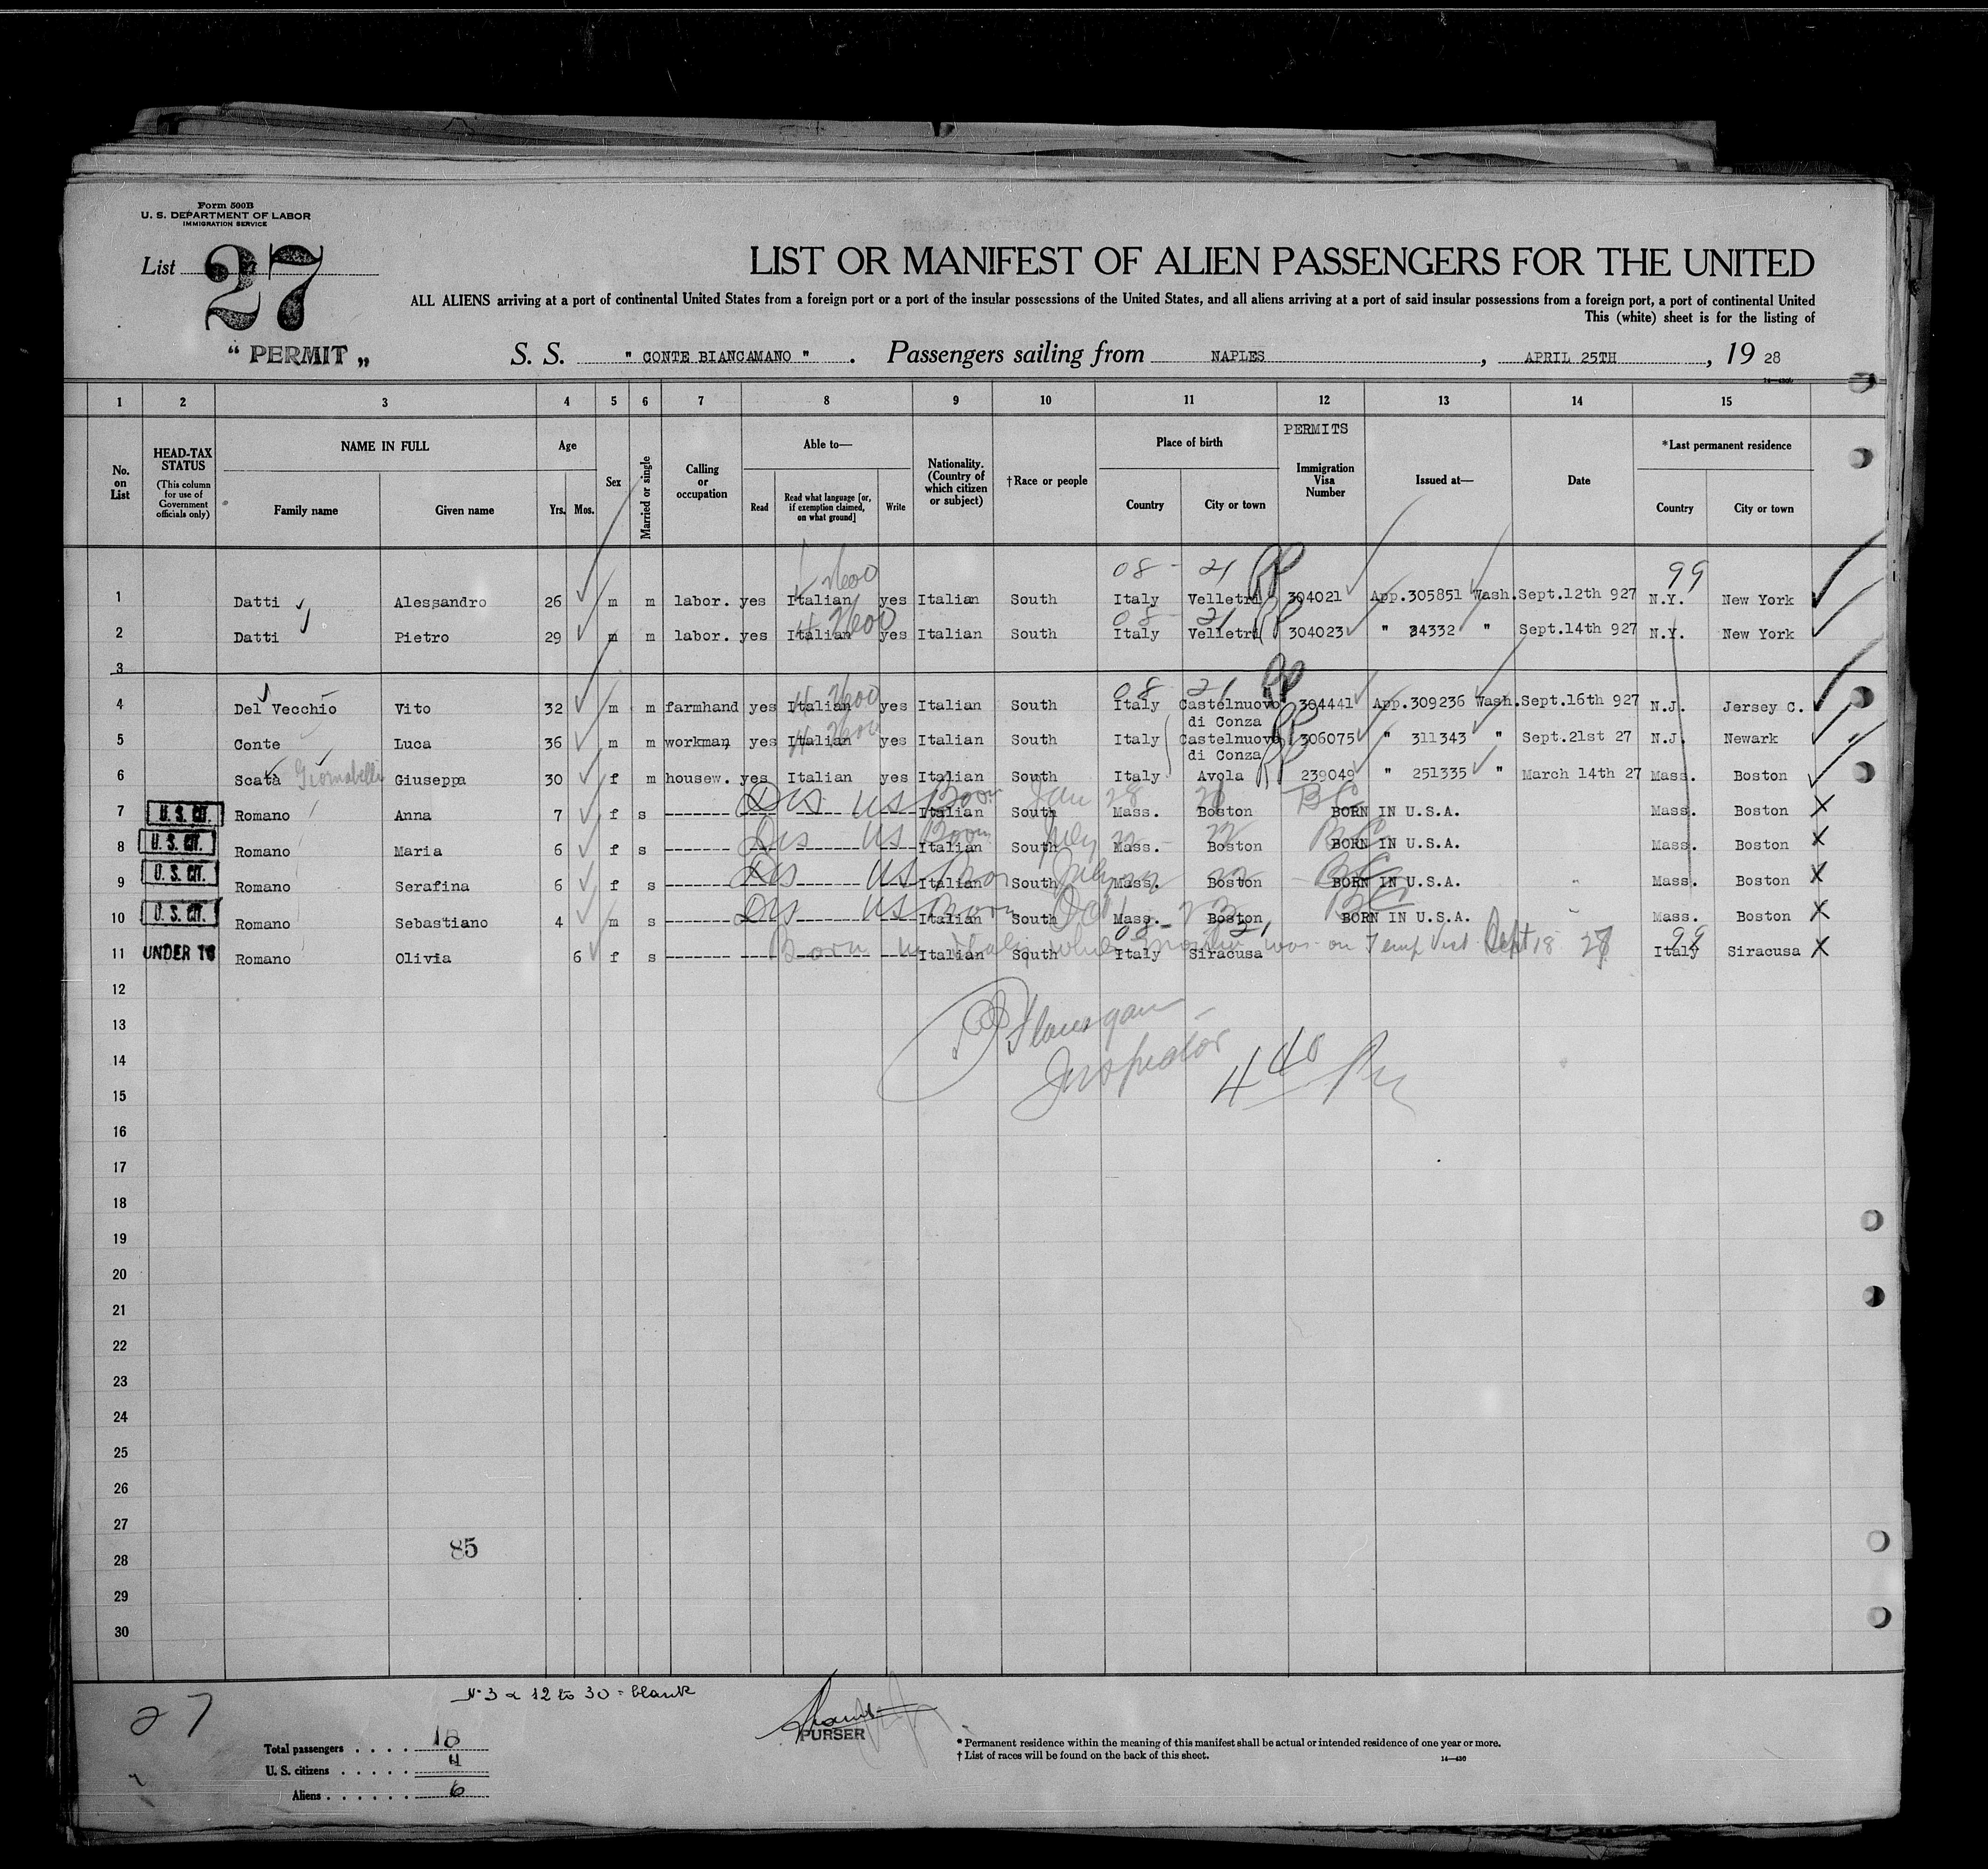 Form 500B
U. S. DEPARTMENT OF LABOR
IMMIGRATION SERVICE
List 27
LIST OR MANIFEST OF ALIEN PASSENGERS FOR THE UNITED
ALL ALIENS arriving at a port of continental United States from a foreign port or a port of the insular possessions of the United States, and all aliens arriving at a port of said insular possessions from a foreign port, a port of continental United
This (white) sheet is for the listing of
“ PERMIT „ S. S. " CONTE BIANCAMANO " . Passengers sailing from NAPLES , APRIL 25TH , 19 28
1 2 3 4 5 6 7 8 9 10 11 12 13 14 15
No. on List
HEAD-TAX STATUS
(This column for use of Government officials only)
NAME IN FULL
Family name Given name
Age
Yrs. Mos.
Sex
Married or single
Calling or occupation
Able to—
Read
Read what language [or, if exemption claimed, on what ground]
Write
Nationality. (Country of which citizen or subject)
† Race or people
Place of birth
Country City or town
PERMITS
Immigration Visa Number
Issued at—
Date
*Last permanent residence
Country City or town
08 - 21 99
1 Datti Alessandro 26 m m labor. yes Italian yes Italian South Italy Velletri 304021 App.305851 Wash. Sept.12th 927 N.Y. New York
08 - 21
2 Datti Pietro 29 m m labor. yes Italian yes Italian South Italy Velletri 304023 " 34332 " Sept.14th 927 N.Y. New York
3
08 21
4 Del Vecchio Vito 32 m m farmhand yes Italian yes Italian South Italy Castelnuovo di Conza 304441 App.309236 Wash. Sept.16th 927 N.J. Jersey C.
5 Conte Luca 36 m m workman yes Italian yes Italian South Italy Castelnuovo di Conza 306075 " 311343 " Sept.21st 27 N.J. Newark
6 Scatà Giuseppa 30 f m housew. yes Italian yes Italian South Italy Avola 239049 " 251335 " March 14th 27 Mass. Boston
Dis US Born Jan 28 BC
7 U. S. CIT. Romano Anna 7 f s Italian South Mass. Boston BORN IN U.S.A. Mass. Boston X
Dis US Born July 22 - 22 BC
8 U. S. CIT. Romano Maria 6 f s Italian South Mass. Boston BORN IN U.S.A. Mass. Boston X
Dis US Born July 22 22 BC
9 U. S. CIT. Romano Serafina 6 f s Italian South Mass. Boston BORN IN U.S.A. Mass. Boston X
Dis US Born Oct 23 BC
10 U. S. CIT. Romano Sebastiano 4 m s Italian South Mass. Boston BORN IN U.S.A. Mass. Boston X
08 - 21 99
Born in Italy while mother was on Temp Visit Sept 18 27
11 UNDER 16 Romano Olivia 6 f s Italian South Italy Siracusa Italy Siracusa X
12
13 Flanagan
14 Inspector
15
16
17
18
19
20
21
22
23
24
25
26
27
85
28
29
30
27
N. 3 & 12 to 30 = blank
PURSER
Total passengers . . . . 10
U. S. citizens . . . . . 4
Aliens . . . . . . 6
* Permanent residence within the meaning of this manifest shall be actual or intended residence of one year or more.
† List of races will be found on the back of this sheet.
14—430